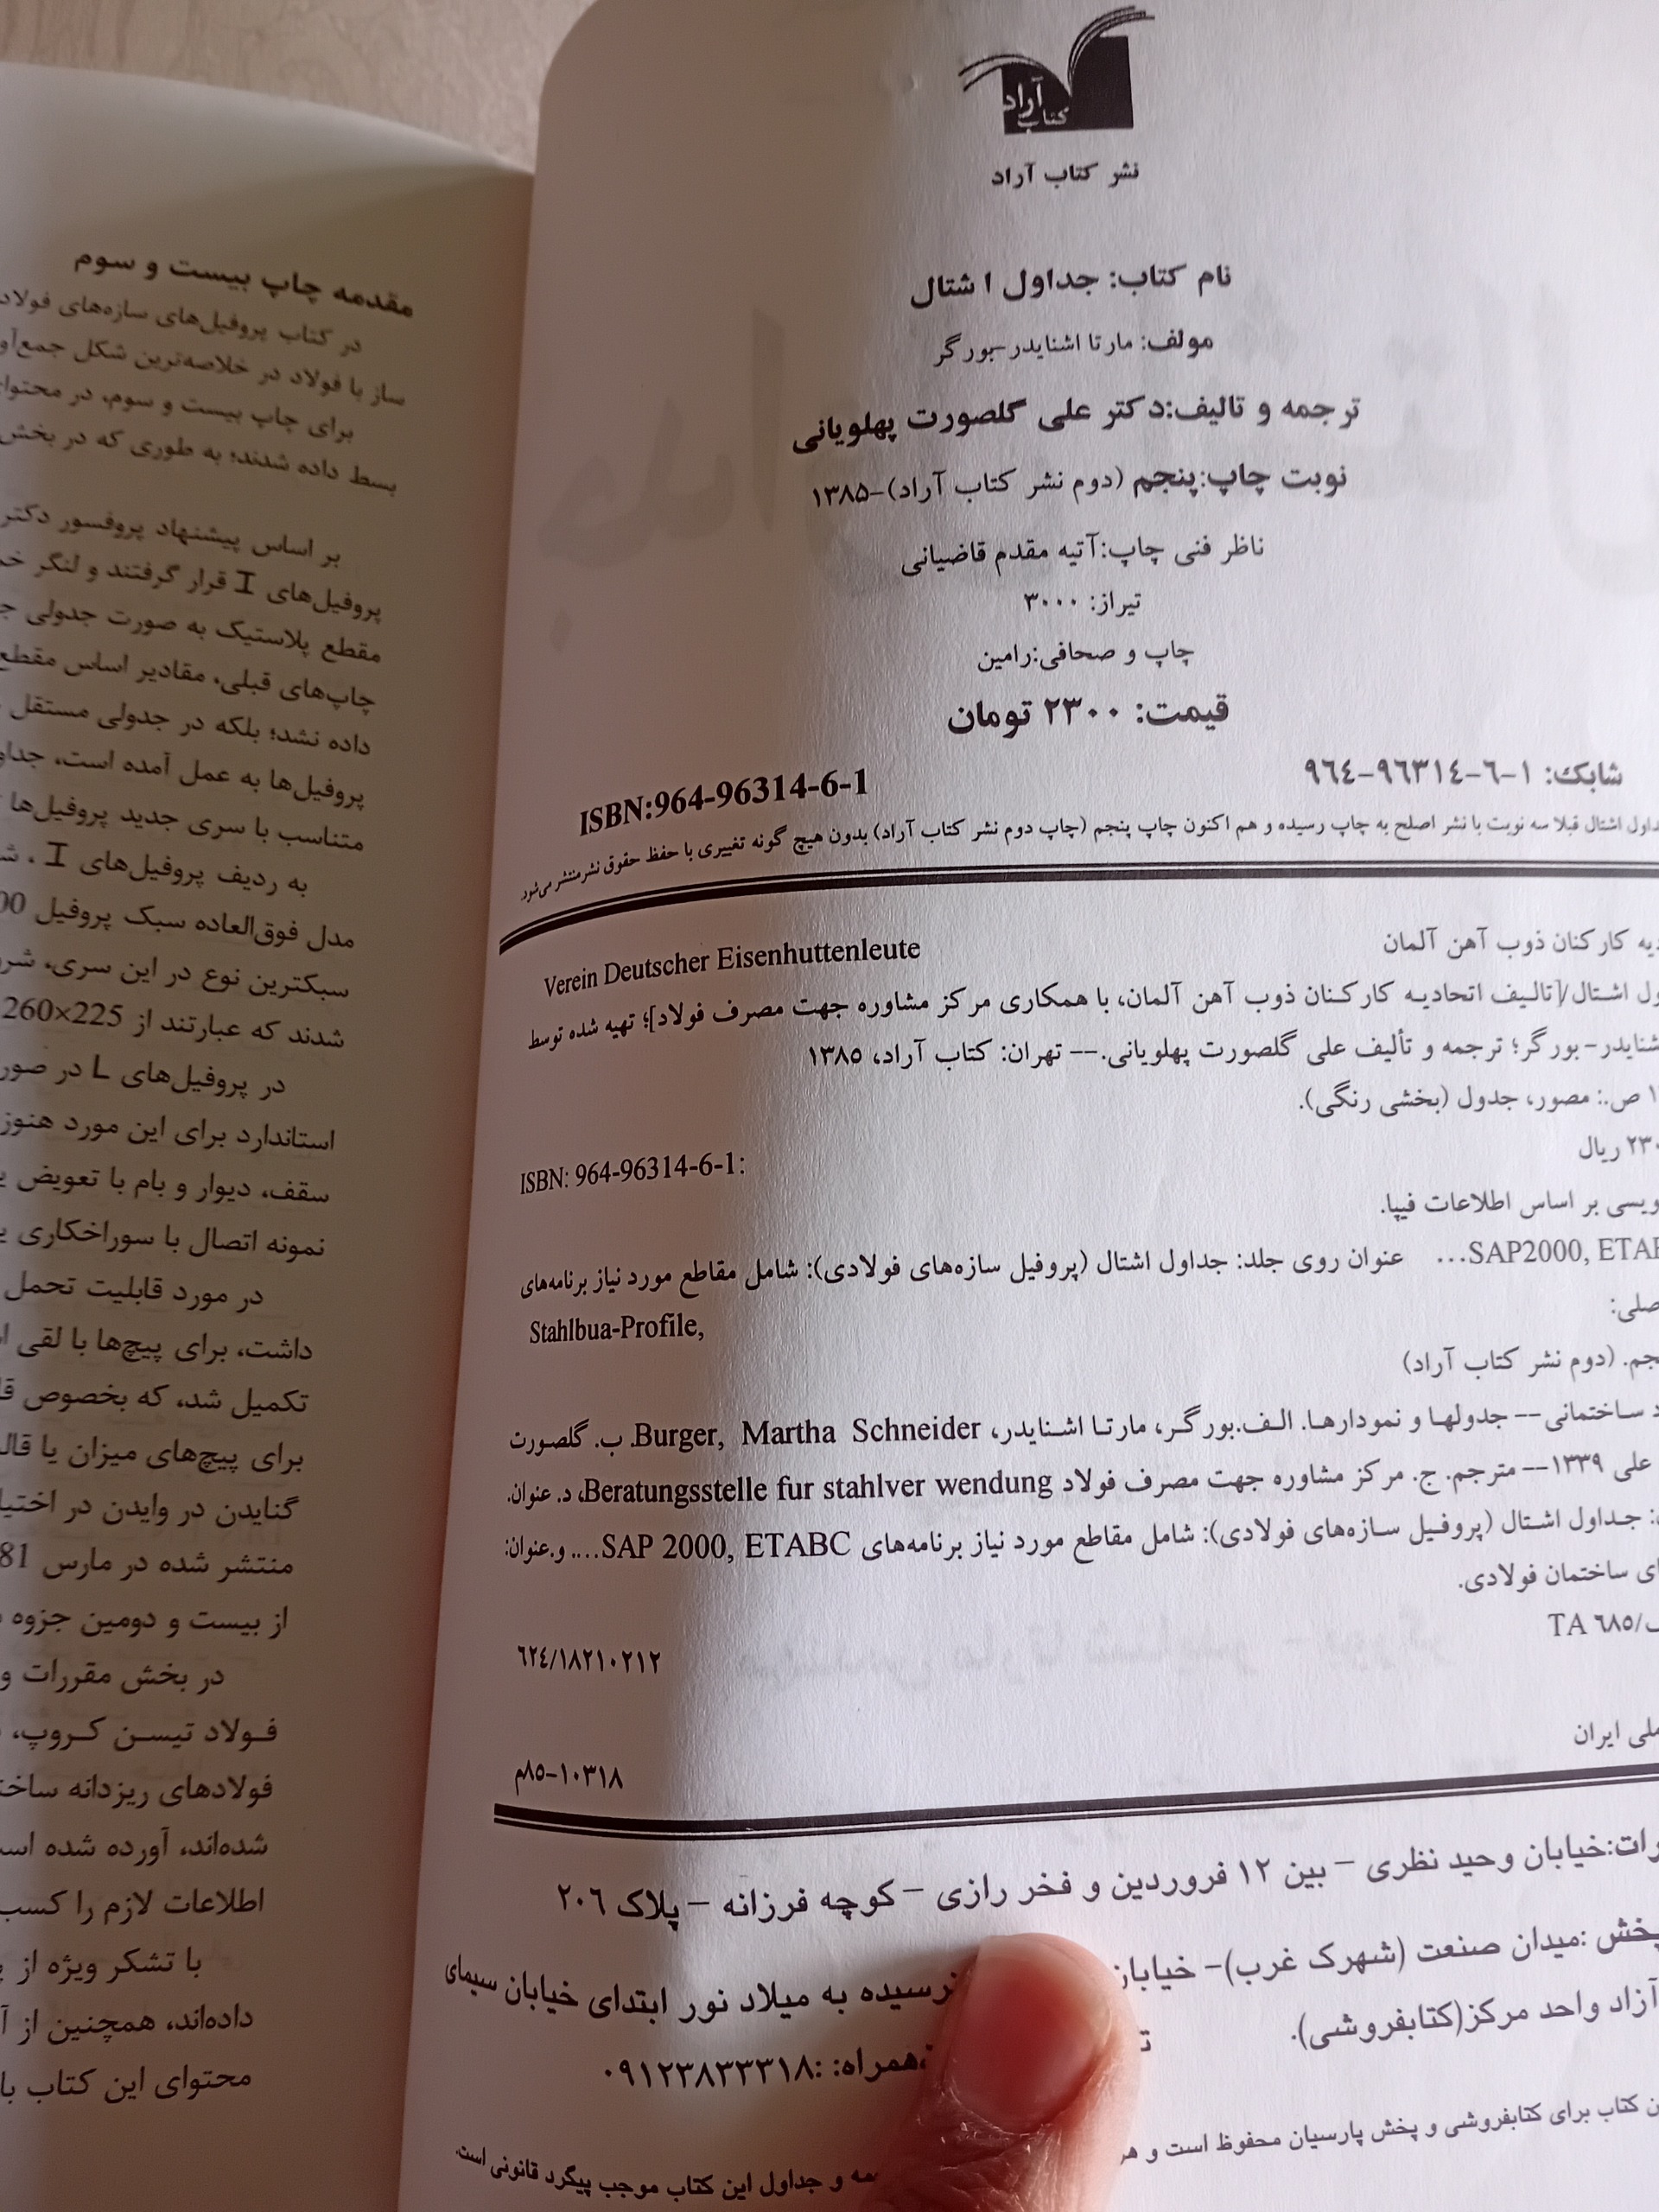 آراد
کتاب
نشر کتاب آراد
نام کتاب: جداول ا شتال
مولف: مارتا اشنایدر-بورگر
ترجمه و تالیف:دکتر علی گلصورت پهلویانی
نوبت چاپ:پنجم (دوم نشر کتاب آراد)-۱۳۸۵
ناظر فنی چاپ:آتیه مقدم قاضیانی
تیراز: ۳۰۰۰
چاپ و صحافی:رامین
قیمت: ۲۳۰۰ تومان
شابک: ۱-۶-۹۶۳۱۴-۹۶۴
ISBN:964-96314-6-1
داول اشتال قبلا سه نوبت با نشر اصلح به چاپ رسیده و هم اکنون چاپ پنجم (چاپ دوم نشر کتاب آراد) بدون هیچ گونه تغییری با حفظ حقوق نشرمنتشر می‌شود
دیه کارکنان ذوب آهن آلمان Verein Deutscher Eisenhuttenleute
ول اشتال/[تالیف اتحادیه کارکنان ذوب آهن آلمان، با همکاری مرکز مشاوره جهت مصرف فولاد]؛ تهیه شده توسط
شنایدر-بورگر؛ ترجمه و تألیف علی گلصورت پهلویانی.-- تهران: کتاب آراد، ۱۳۸۵
ص.: مصور، جدول (بخشی رنگی).
ریال
ISBN: 964-96314-6-1:
ویسی بر اساس اطلاعات فیپا.
عنوان روی جلد: جداول اشتال (پروفیل سازه‌های فولادی): شامل مقاطع مورد نیاز برنامه‌های SAP2000, ETAB...
صلی:
Stahlbua-Profile,
جم. (دوم نشر کتاب آراد)
د ساختمانی-- جدولها و نمودارها. الف.بورگر، مارتا اشنایدر، Burger, Martha Schneider. ب. گلصورت
علی ۱۳۳۹-- مترجم. ج. مرکز مشاوره جهت مصرف فولاد Beratungsstelle fur stahlver wendung، د. عنوان.
: جداول اشتال (پروفیل سازه‌های فولادی): شامل مقاطع مورد نیاز برنامه‌های SAP 2000, ETABC.... و.عنوان:
ای ساختمان فولادی.
TA ۶۸۵/
۶۲۴/۱۸۲۱۰۲۱۲
ملی ایران
۱۰۳۱۸-۸۵م
رات:خیابان وحید نظری - بین ۱۲ فروردین و فخر رازی - کوچه فرزانه - پلاک ۲۰۶
پخش :میدان صنعت (شهرک غرب)- خیابان نرسیده به میلاد نور ابتدای خیابان سیمای
آزاد واحد مرکز(کتابفروشی). همراه: :۰۹۱۲۳۸۳۳۳۱۸
ن کتاب برای کتابفروشی و پخش پارسیان محفوظ است و هر مه و جداول این کتاب موجب پیگرد قانونی است.
مقدمه چاپ بیست و سوم
در کتاب پروفیل‌های سازه‌های فولاد
ساز با فولاد در خلاصه‌ترین شکل جمع‌آو
برای چاپ بیست و سوم، در محتوا
بسط داده شدند؛ به طوری که در بخش
بر اساس پیشنهاد پروفسور دکتر
پروفیل‌های I قرار گرفتند و لنگر خ
مقطع پلاستیک به صورت جدولی ج
چاپ‌های قبلی، مقادیر اساس مقطع
داده نشد؛ بلکه در جدولی مستقل
پروفیل‌ها به عمل آمده است، جدا
متناسب با سری جدید پروفیل‌ها
به ردیف پروفیل‌های I ، ش
مدل فوق‌العاده سبک پروفیل 00
سبکترین نوع در این سری، شر
شدند که عبارتند از 260×225
در پروفیل‌های L در صور
استاندارد برای این مورد هنوز
سقف، دیوار و بام با تعویض ی
نمونه اتصال با سوراخکاری ی
در مورد قابلیت تحمل
داشت، برای پیچ‌ها با لقی ا
تکمیل شد، که بخصوص ق
برای پیچ‌های میزان یا قال
گنایدن در وایدن در اختیا
منتشر شده در مارس 81
از بیست و دومین جزوه
در بخش مقررات و
فولاد تیسن کروپ،
فولادهای ریزدانه ساخ
شده‌اند، آورده شده اس
اطلاعات لازم را کسب
با تشکر ویژه از
داده‌اند، همچنین از آ
محتوای این کتاب با